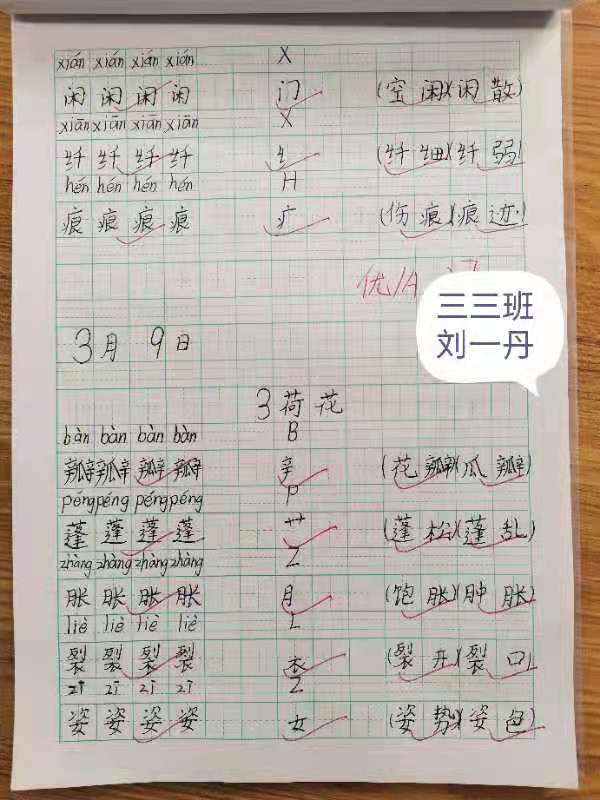 xián xián xián xián X
闲 闲 闲 闲 门 (空 闲)(闲 散)
xiān xiān xiān xiān X
纤 纤 纤 纤 纟 (纤 细)(纤 弱)
hén hén hén hén H
痕 痕 痕 痕 疒 (伤 痕)(痕 迹)
优/A
三三班
刘一丹
3月 9日
3 荷花
bàn bàn bàn bàn B
瓣 瓣 瓣 瓣 辛 (花 瓣)(瓜 瓣)
péng péng péng péng P
蓬 蓬 蓬 蓬 艹 (蓬 松)(蓬 乱)
zhàng zhàng zhàng zhàng Z
胀 胀 胀 胀 月 (饱 胀)(肿 胀)
liè liè liè liè L
裂 裂 裂 裂 衣 (裂 开)(裂 口)
zī zī zī zī Z
姿 姿 姿 姿 女 (姿 势)(姿 色)